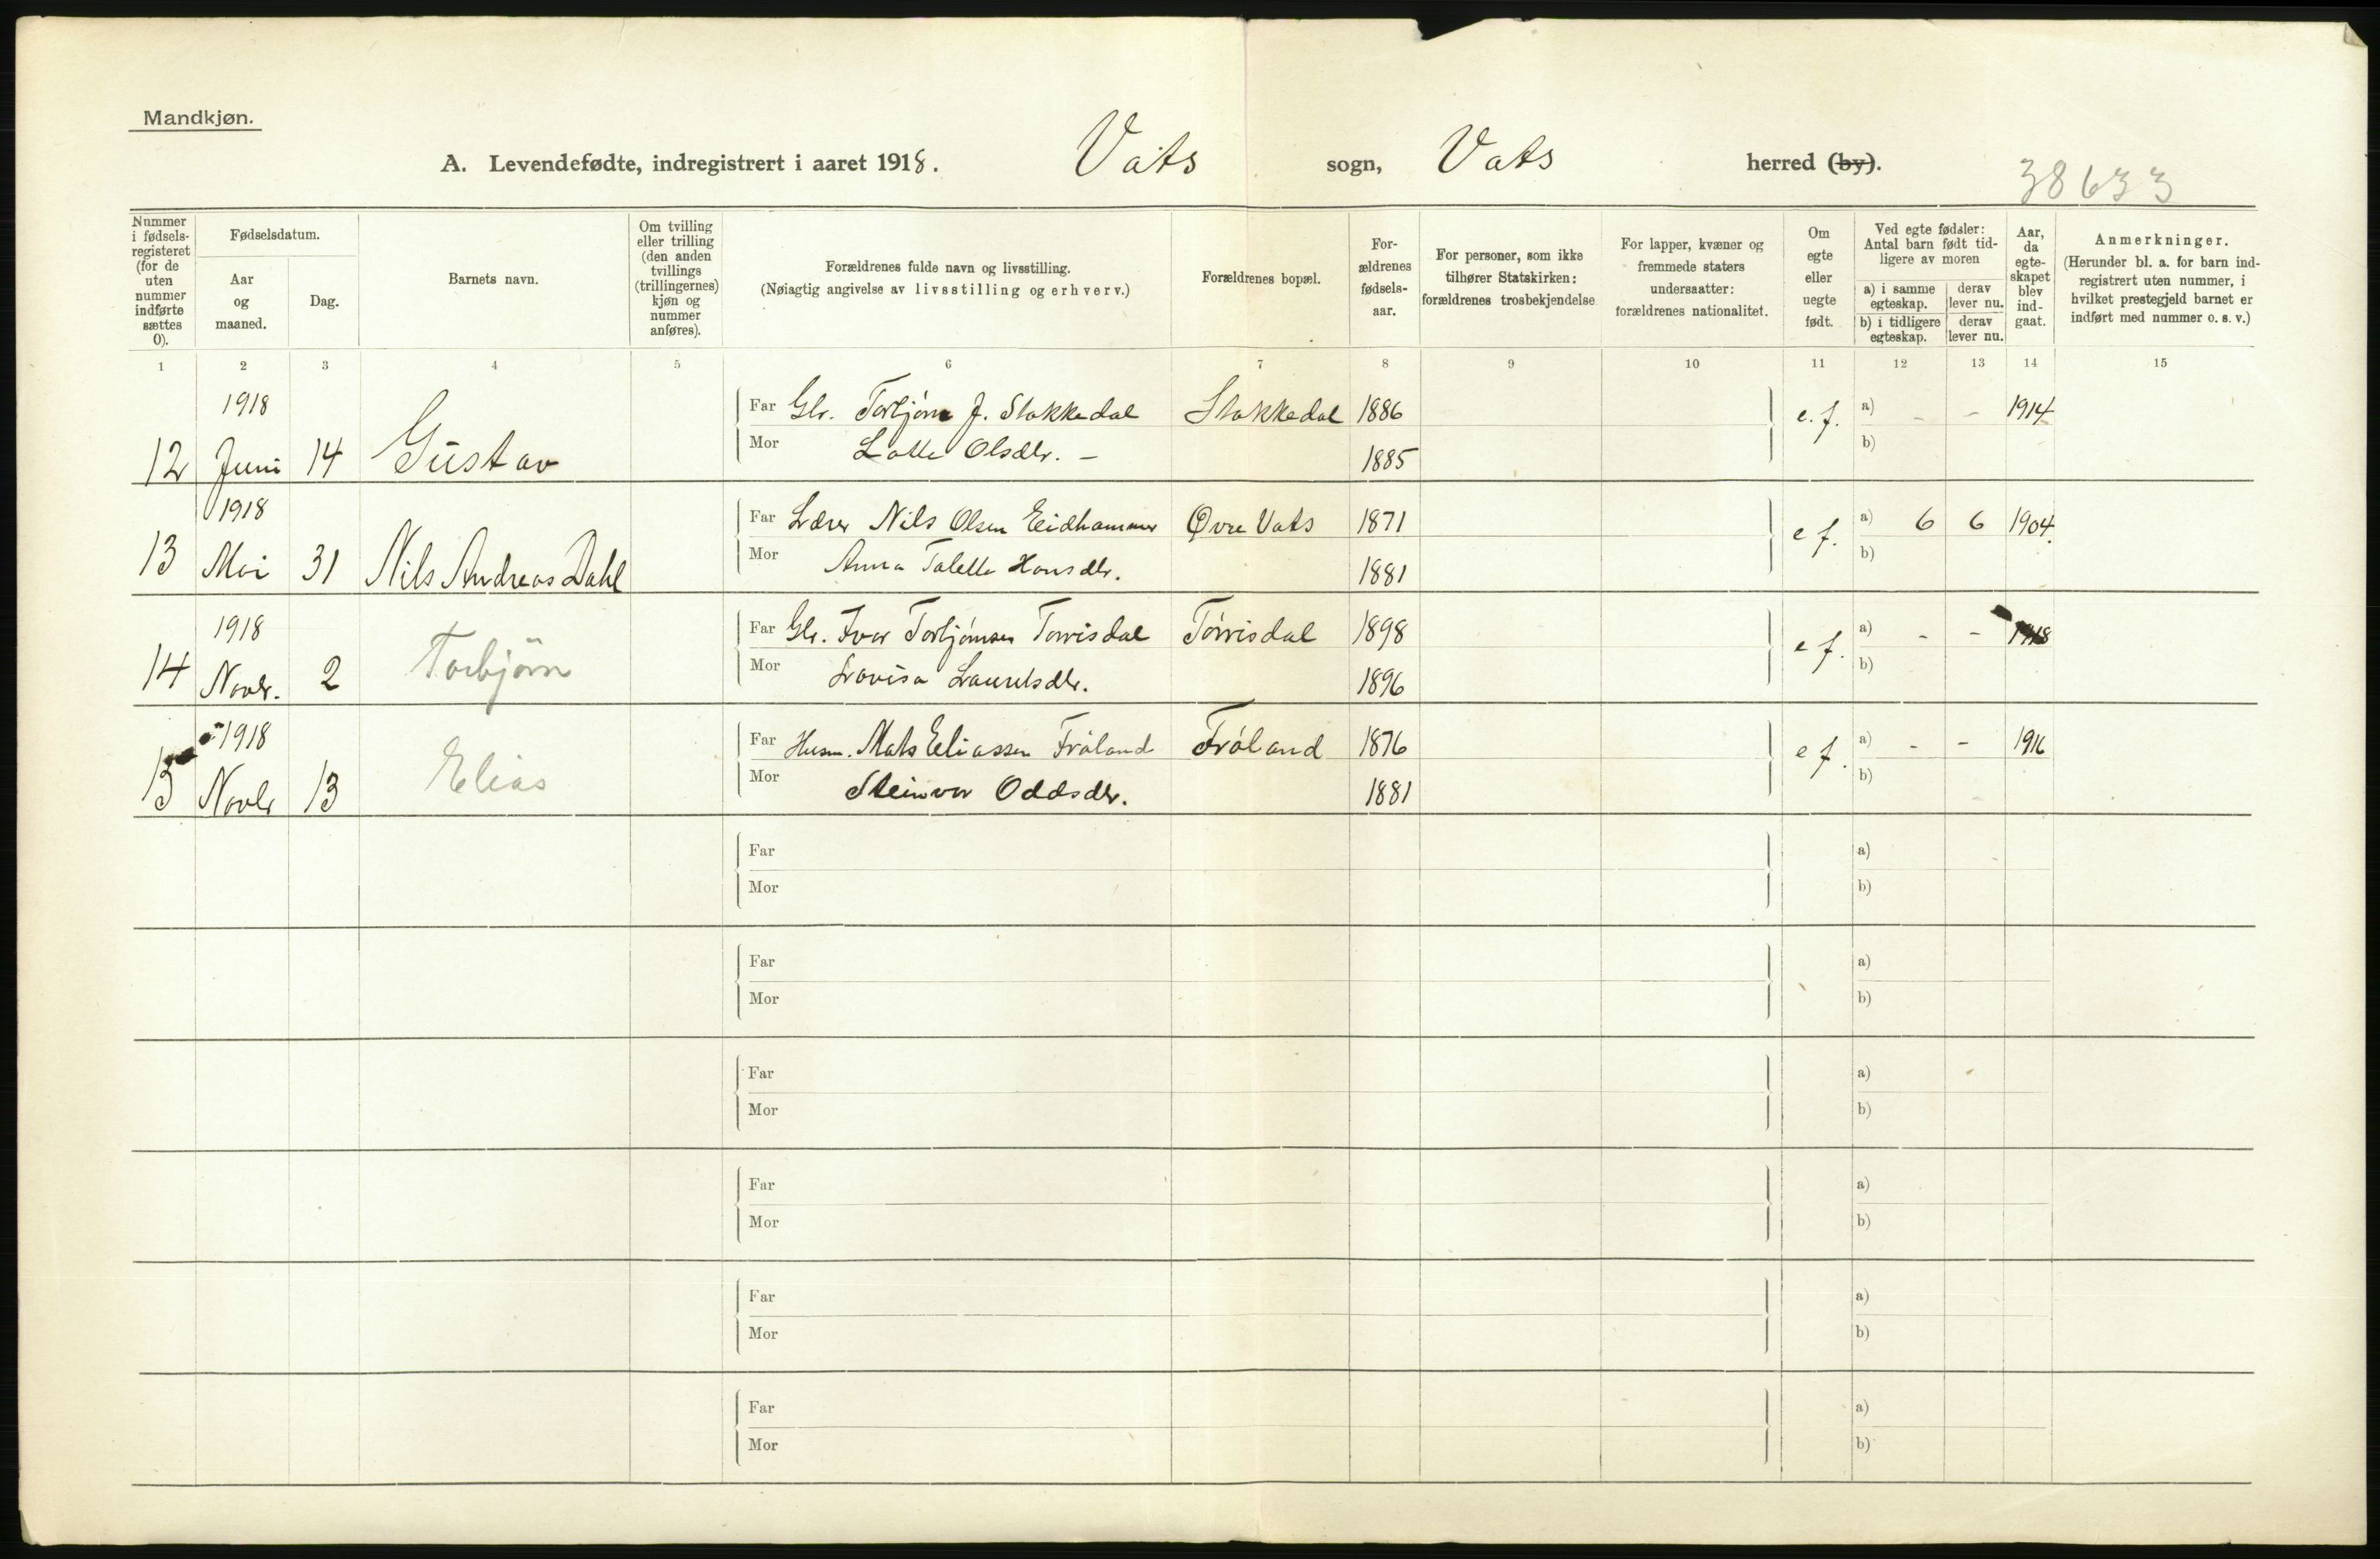 Mandkjøn.
A. Levendefødte, indregistrert i aaret 1918. Vats sogn, Vats herred (by).
38633
Nummer i fødsels-registeret (for de uten nummer indførte sættes 0).
Fødselsdatum.
Aar og maaned.
Dag.
Barnets navn.
Om tvilling eller trilling (den anden tvillings (trillingernes) kjøn og nummer anføres).
Forældrenes fulde navn og livsstilling.
(Nøiagtig angivelse av livsstilling og erhverv.)
Forældrenes bopæl.
For-ældrenes fødsels-aar.
For personer, som ikke tilhører Statskirken: forældrenes trosbekjendelse
For lapper, kvæner og fremmede staters undersaatter: forældrenes nationalitet.
Om egte eller uegte født.
Ved egte fødsler: Antal barn født tid-ligere av moren
a) i samme egteskap.
derav lever nu.
b) i tidligere egteskap.
derav lever nu.
Aar, da egte-skapet blev ind-gaat.
Anmerkninger.
(Herunder bl. a. for barn ind-registrert uten nummer, i hvilket prestegjeld barnet er indført med nummer o. s. v.)
1 2 3 4 5 6 7 8 9 10 11 12 13 14 15
1918 Far Gbr. Torbjørn J. Stokkedal Stokkedal 1886 e. f. a) - - 1914
12 Juni 14 Gustav Mor Lotte Olsdtr. - 1885 b)
1918 Far Lærer Nils Olsen Eidhammer Øvre Vats 1871 e f. a) 6 6 1904.
13 Mai 31 Nils Andreas Dahl Mor Anna Talette Hansdtr. 1881 b)
1918 Far Gbr. Ivar Torbjørnsen Torrisdal Torrisdal 1898 e f. a) - - 1918
14 Novbr. 2 Torbjørn Mor Lovisa Lauritsdtr. 1896 b)
1918 Far Husm. Mats Eliassen Frøland Frøland 1876 e f. a) - - 1916
15 Novbr 13 Elias Mor Steinvor Oddsdtr. 1881 b)
Far a)
Mor b)
Far a)
Mor b)
Far a)
Mor b)
Far a)
Mor b)
Far a)
Mor b)
Far a)
Mor b)